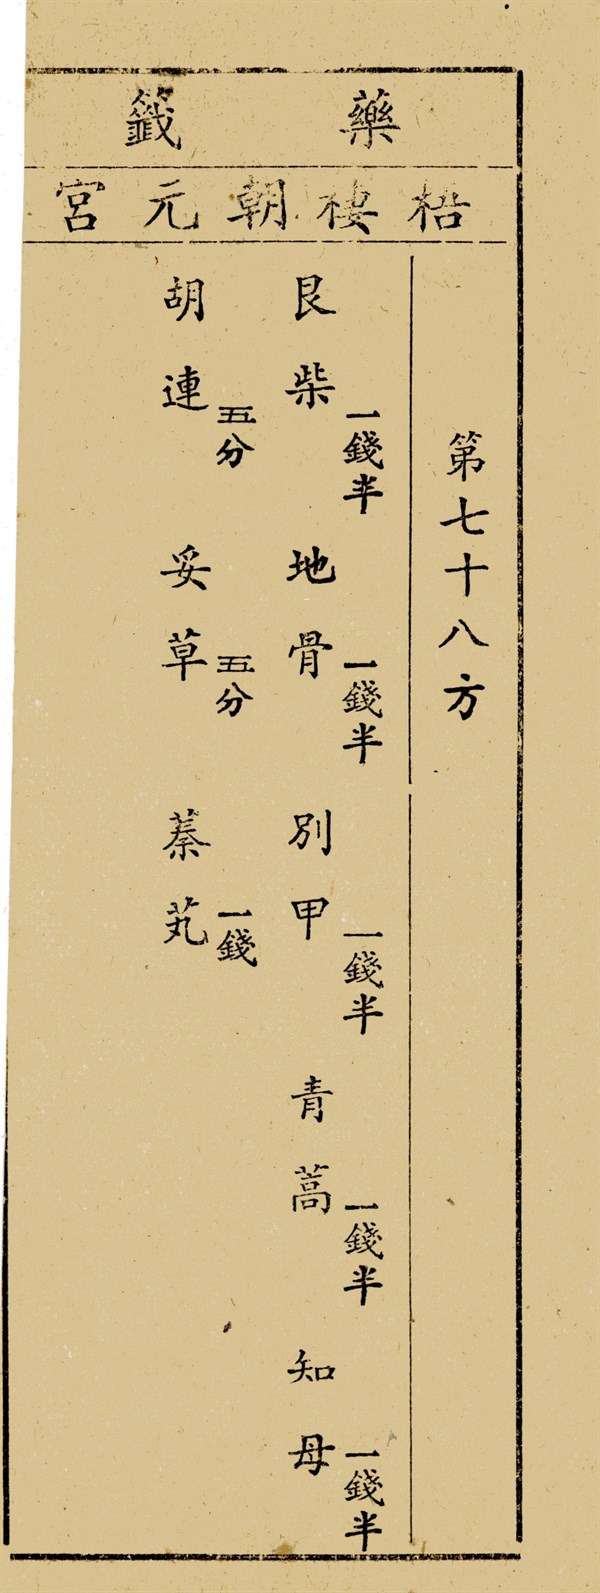 藥籤
梧棲朝元宮
第七十八方
艮柴一錢半 地骨一錢半 別甲一錢半 青蒿一錢半 知母一錢半
胡連五分 妥草五分 蓁芃一錢